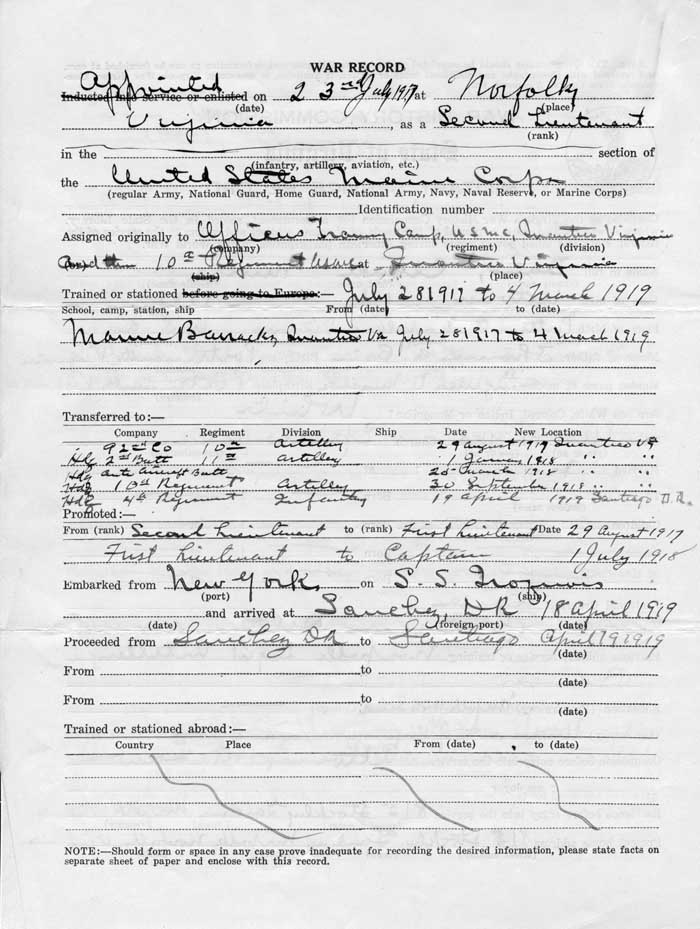 WAR RECORD
Appointed
Inducted into service or enlisted on 23rd July 1917 at Norfolk
(date) (place)
Virginia, as a Second Lieutenant
(rank)
in the section of
(infantry, artillery, aviation, etc.)
the United States Marine Corps
(regular Army, National Guard, Home Guard, National Army, Navy, Naval Reserve, or Marine Corps)
Identification number
Assigned originally to Officers Training Camp, USMC, Quantico Virginia
(company) (regiment) (division)
10th Regiment USMC at Quantico Virginia
(ship) (place)
Trained or stationed before going to Europe:— July 28 1917 to 4 March 1919
School, camp, station, ship From (date) to (date)
Marine Barracks, Quantico Va July 28 1917 to 4 March 1919
Transferred to:—
Company Regiment Division Ship Date New Location
92nd Co 10th Artillery 29 August 1917 Quantico Va
Hdq 2nd Batt 11th Artillery 1 January 1918 " "
Hdq Anti Aircraft Batt 25 March 1918 " "
Hdq 10th Regiment Artillery 30 September 1918 " "
Hdq 4th Regiment Infantry 19 April 1919 Santiago D.R.
Promoted:—
From (rank) Second Lieutenant to (rank) First Lieutenant Date 29 August 1917
First Lieutenant to Captain 1 July 1918
Embarked from New York on S.S. Iroquois
(port) (ship)
and arrived at Sanchez, DR 18 April 1919
(date) (foreign port) (date)
Proceeded from Sanchez DR to Santiago April 19 1919
(date)
From to
(date)
From to
(date)
Trained or stationed abroad:—
Country Place From (date) to (date)
NOTE:—Should form or space in any case prove inadequate for recording the desired information, please state facts on
separate sheet of paper and enclose with this record.